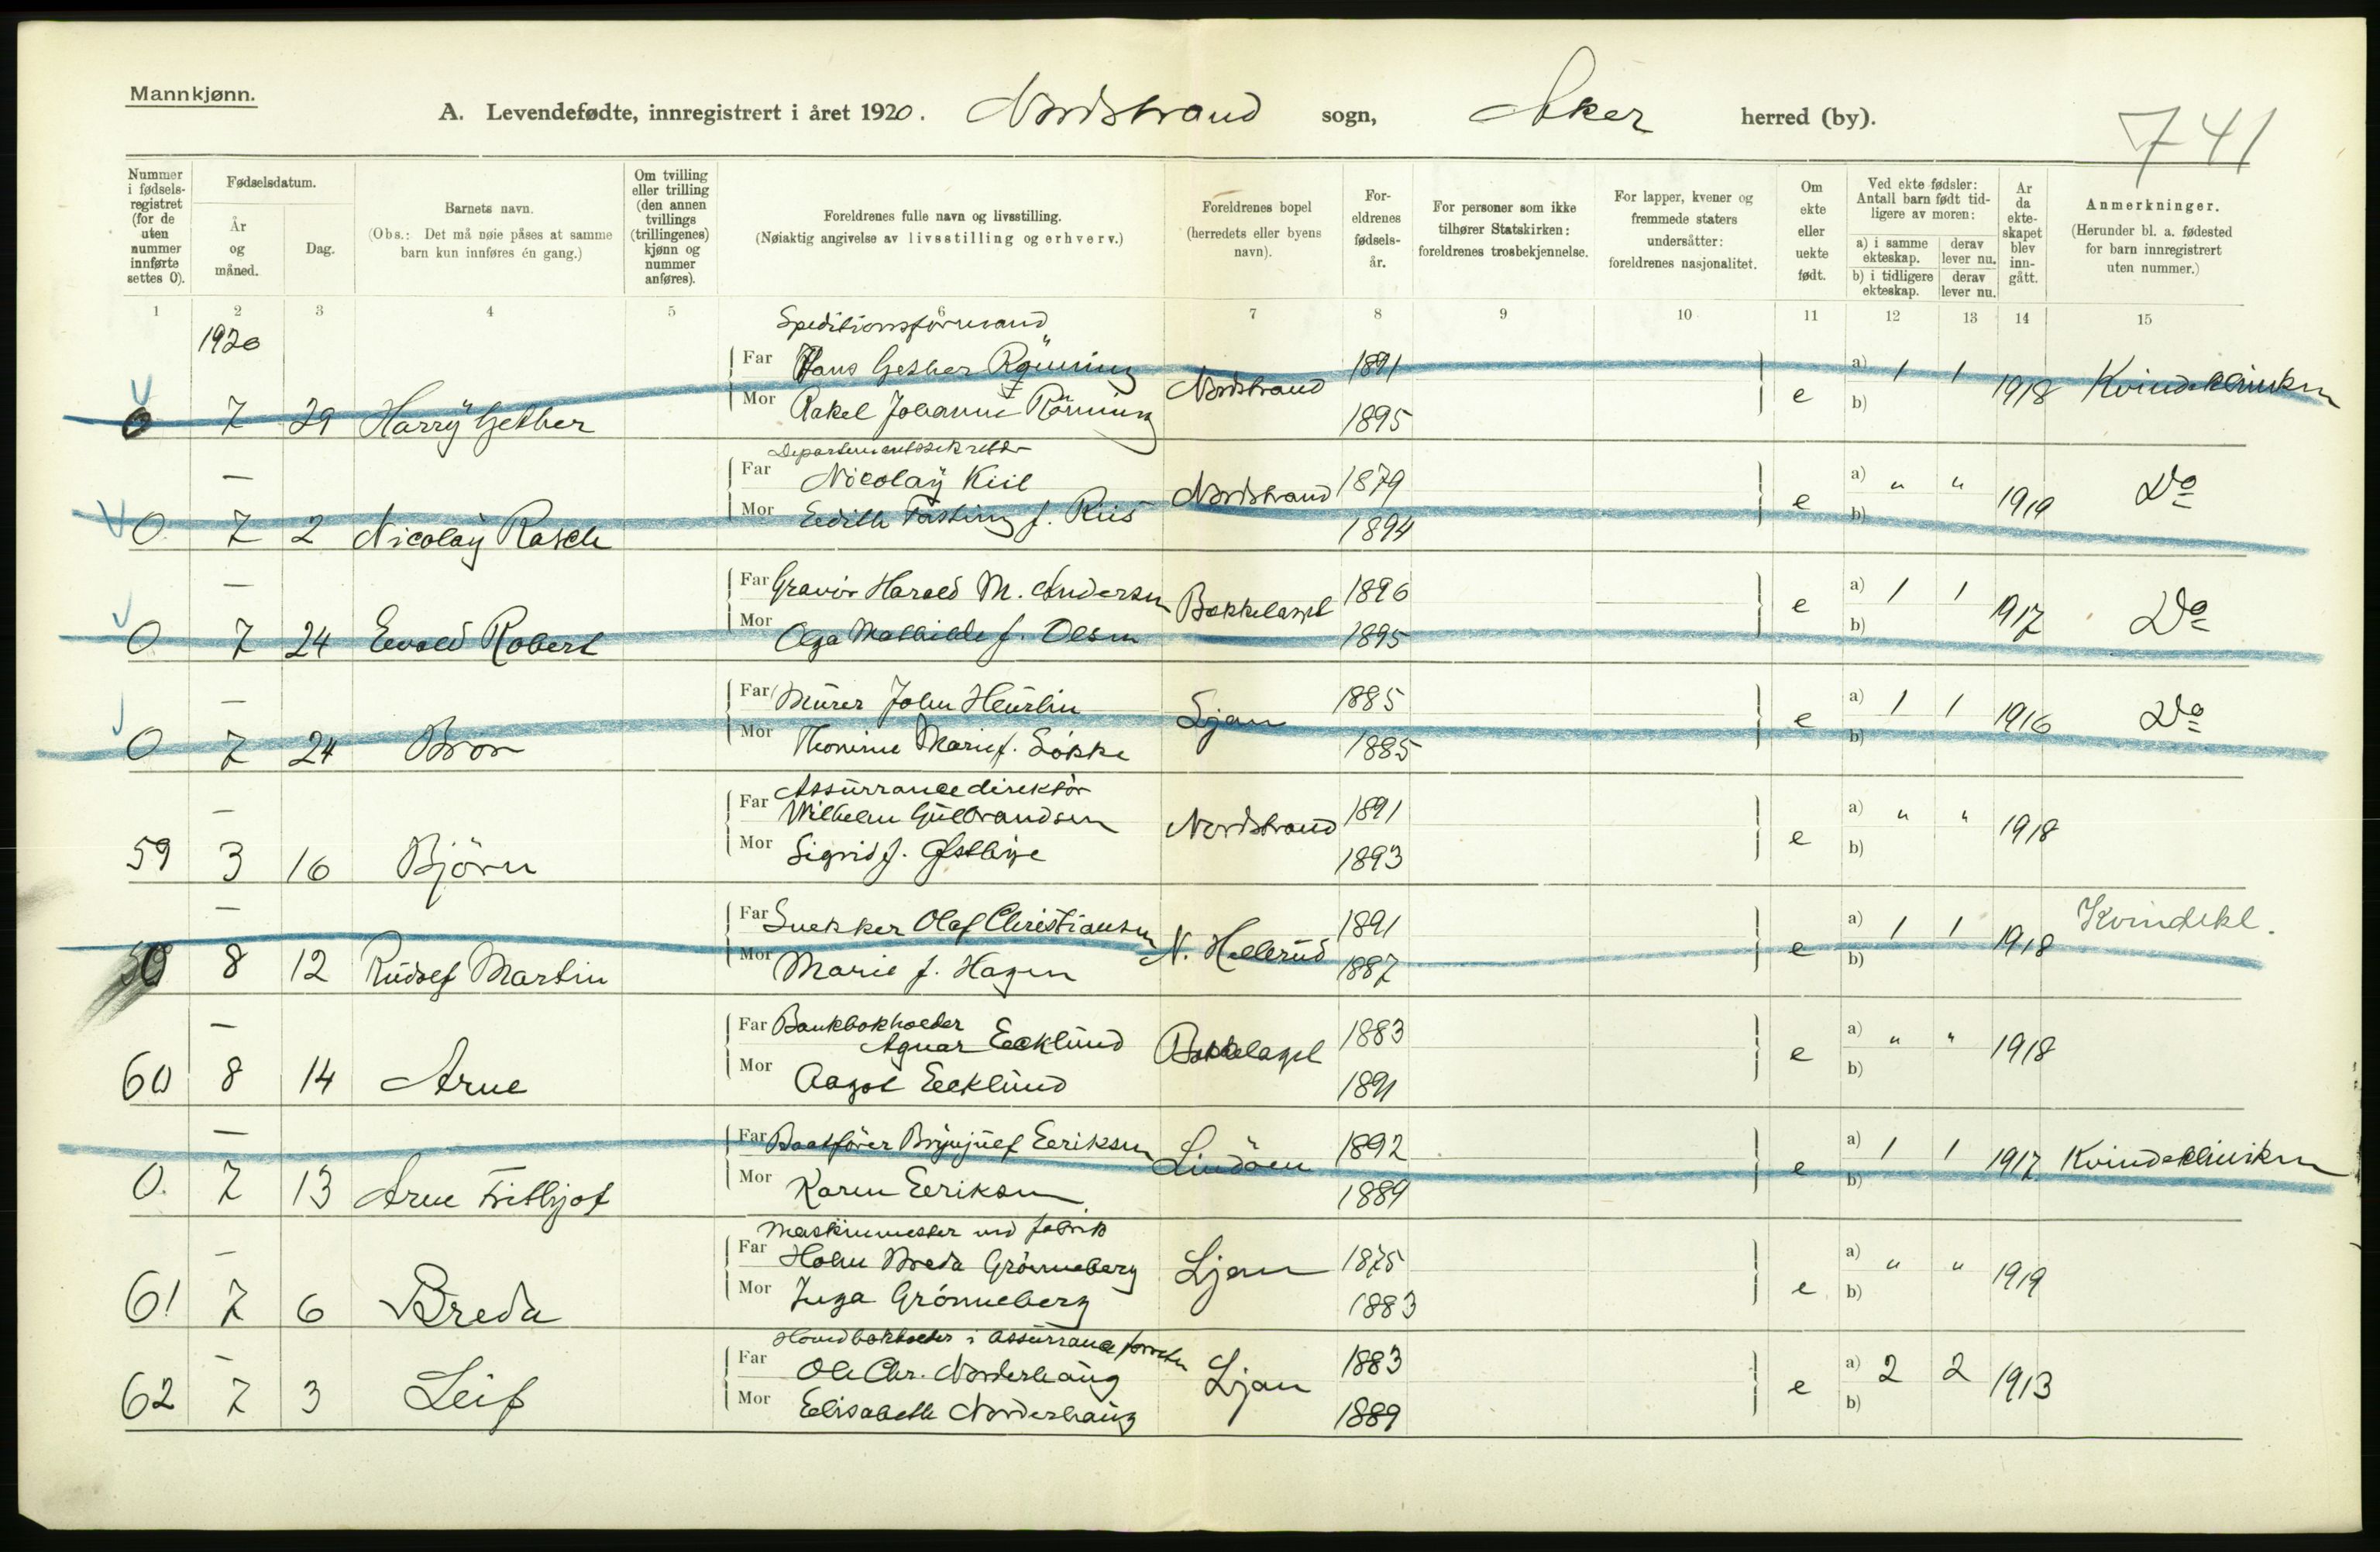 Mannkjønn.
A. Levendefødte, innregistrert i året 1920. Nordstrand sogn, Aker herred (by).
741
Nummer i fødselsregistret (for de uten nummer innførte settes 0).
Fødselsdatum.
År og måned.
Dag.
Barnets navn.
(Obs.: Det må nøie påses at samme barn kun innføres én gang.)
Om tvilling eller trilling (den annen tvillings (trillingenes) kjønn og nummer anføres).
Foreldrenes fulle navn og livsstilling.
(Nøiaktig angivelse av livsstilling og erhverv.)
Foreldrenes bopel (herredets eller byens navn).
Foreldrenes fødselsår.
For personer som ikke tilhører Statskirken: foreldrenes trosbekjennelse.
For lapper, kvener og fremmede staters undersåtter: foreldrenes nasjonalitet.
Om ekte eller uekte født.
Ved ekte fødsler: Antall barn født tidligere av moren:
a) i samme ekteskap.
derav lever nu.
b) i tidligere ekteskap.
derav lever nu.
Ar da ekteskapet blev inngått.
Anmerkninger.
(Herunder bl. a. fødested for barn innregistrert uten nummer.)
1 2 3 4 5 6 7 8 9 10 11 12 13 14 15
1920
Speditionsformand
Far Hans Gether Rönning Nordstrand 1891 a) 1 1
0 7 29 Harry Gether Mor Rakel Johanne Rönning 1895 e b) 1918 Kvindekliniken
Departementssekretær
— Far Nicolay Kiil Nordstrand 1879 a) " "
0 7 2 Nicolay Rasch Mor Edith Fasting f. Riis 1894 e b) 1919 Do
— Far Gravör Harald M. Andersen Bækkelaget 1896 a) 1 1
0 7 24 Evald Robert Mor Olga Mathilde f. Olsen 1895 e b) 1917 Do
— Far Murer John Heurlin Ljan 1885 a) 1 1
0 7 24 Bror Mor Thomine Marie f. Løkke 1885 e b) 1916 Do
Assurrancedirektör
— Far Wilhelm Gulbrandsen Nordstrand 1891 a) " "
59 3 16 Björn Mor Sigrid f. Østbye 1893 e b) 1918
— Far Snekker Olaf Christiansen N. Hellerud 1891 a) 1 1 Kvindekl.
0 8 12 Rudolf Martin Mor Marie f. Hagen 1887 e b) 1918
— Far Bankbokholder
Agnar Ecklund Bækkelaget 1883 a) " "
60 8 14 Arne Mor Aagot Ecklund 1891 e b) 1918
— Far Baatförer Brynjulf Eriksen Lindöen 1892 a) 1 1
0. 7 13 Arne Frithjof Mor Karen Eriksen 1889 e b) 1917 Kvindekliniken
Maskinmester ved fabrik
— Far Holm Breda Grønneberg Ljan 1875 a) " "
61 7 6 Breda Mor Inga Grønneberg 1883 e b) 1919
Hovedbokholder i Assurrance forretn
— Far Ole Chr. Norderhaug Ljan 1883 a) 2 2
62 7 3 Leif Mor Elisabeth Norderhaug 1889 e b) 1913